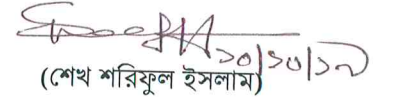 ২০/১০/১৯
(শেখ শরিফুল ইসলাম)